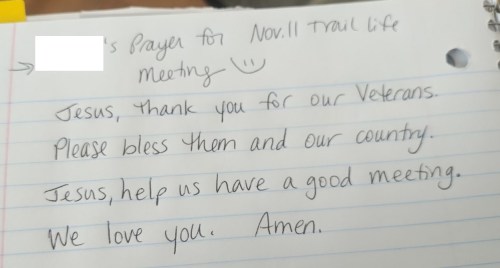 's Prayer for Nov. 11 Trail Life
→ meeting
Jesus, thank you for our Veterans.
Please bless them and our country.
Jesus, help us have a good meeting.
We love you. Amen.